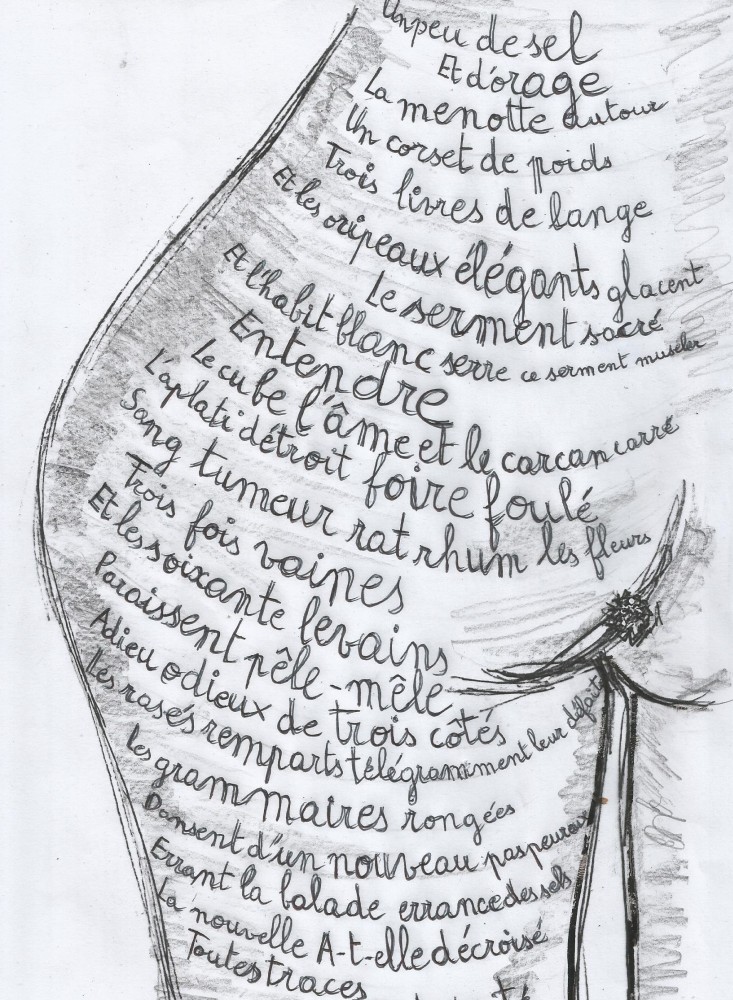 Un peu de sel
Et d'orage
La menotte autour
Un corset de poids
Trois livres de lange
Et les oripeaux élégants glacent
Le serment sacré
Et l'habit blanc serre ce serment museler
Entendre
Le cube l'âme et le carcan carré
L'aplati détroit foire foulé
Sang tumeur rat rhum les fleurs
Trois fois vaines
Et les soixante levains
Paraissent pêle-mêle
Adieu odieux de trois côtés
Les rasés remparts télégramment leur défaite
Les grammaires rongées
Dansent d'un nouveau pas peureux
Errant la balade errance des sels
La nouvelle A-t-elle décroisé
Toutes traces